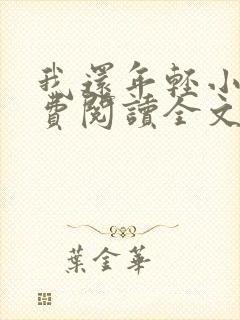 我還年輕小
費閱讀全文
葉金華